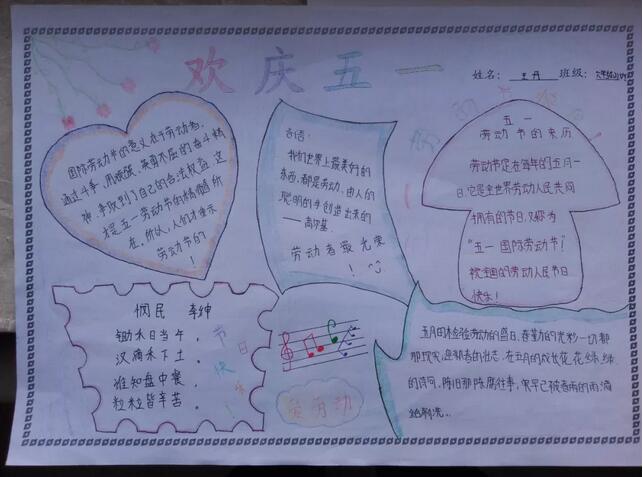 欢庆五一
姓名： 王丹 班级：
国际劳动节的意义在于劳动者，
通过斗争，用顽强、英勇不屈的奋斗精
神，争取到了自己的合法权益。这
才是五一劳动节的精髓所
在，所以，人们才重示
劳动节的
！
名语：
我们世界上最美的的
东西，都是劳动、由人的
聪明的手创造出来的
——高尔基
劳动者最光荣
！
五一
劳动节的来历
劳动节定在每年的五月一
日，它是全世界劳动人民共同
拥有的节日，又称为
“五一国际劳动节”！
祝全国的劳动人民节日
快乐！
悯民 李绅
锄禾日当午，
汗滴禾下土。
谁知盘中餐，
粒粒皆辛苦。
节日快乐！
爱劳动
五月的检验劳动的盛日，春勤的光彩一切都
那现实，迎朝春的出志，在五月的成长花，花绿绿
的诗问，陈旧那陈腐往事，果早已被春雨的雨滴